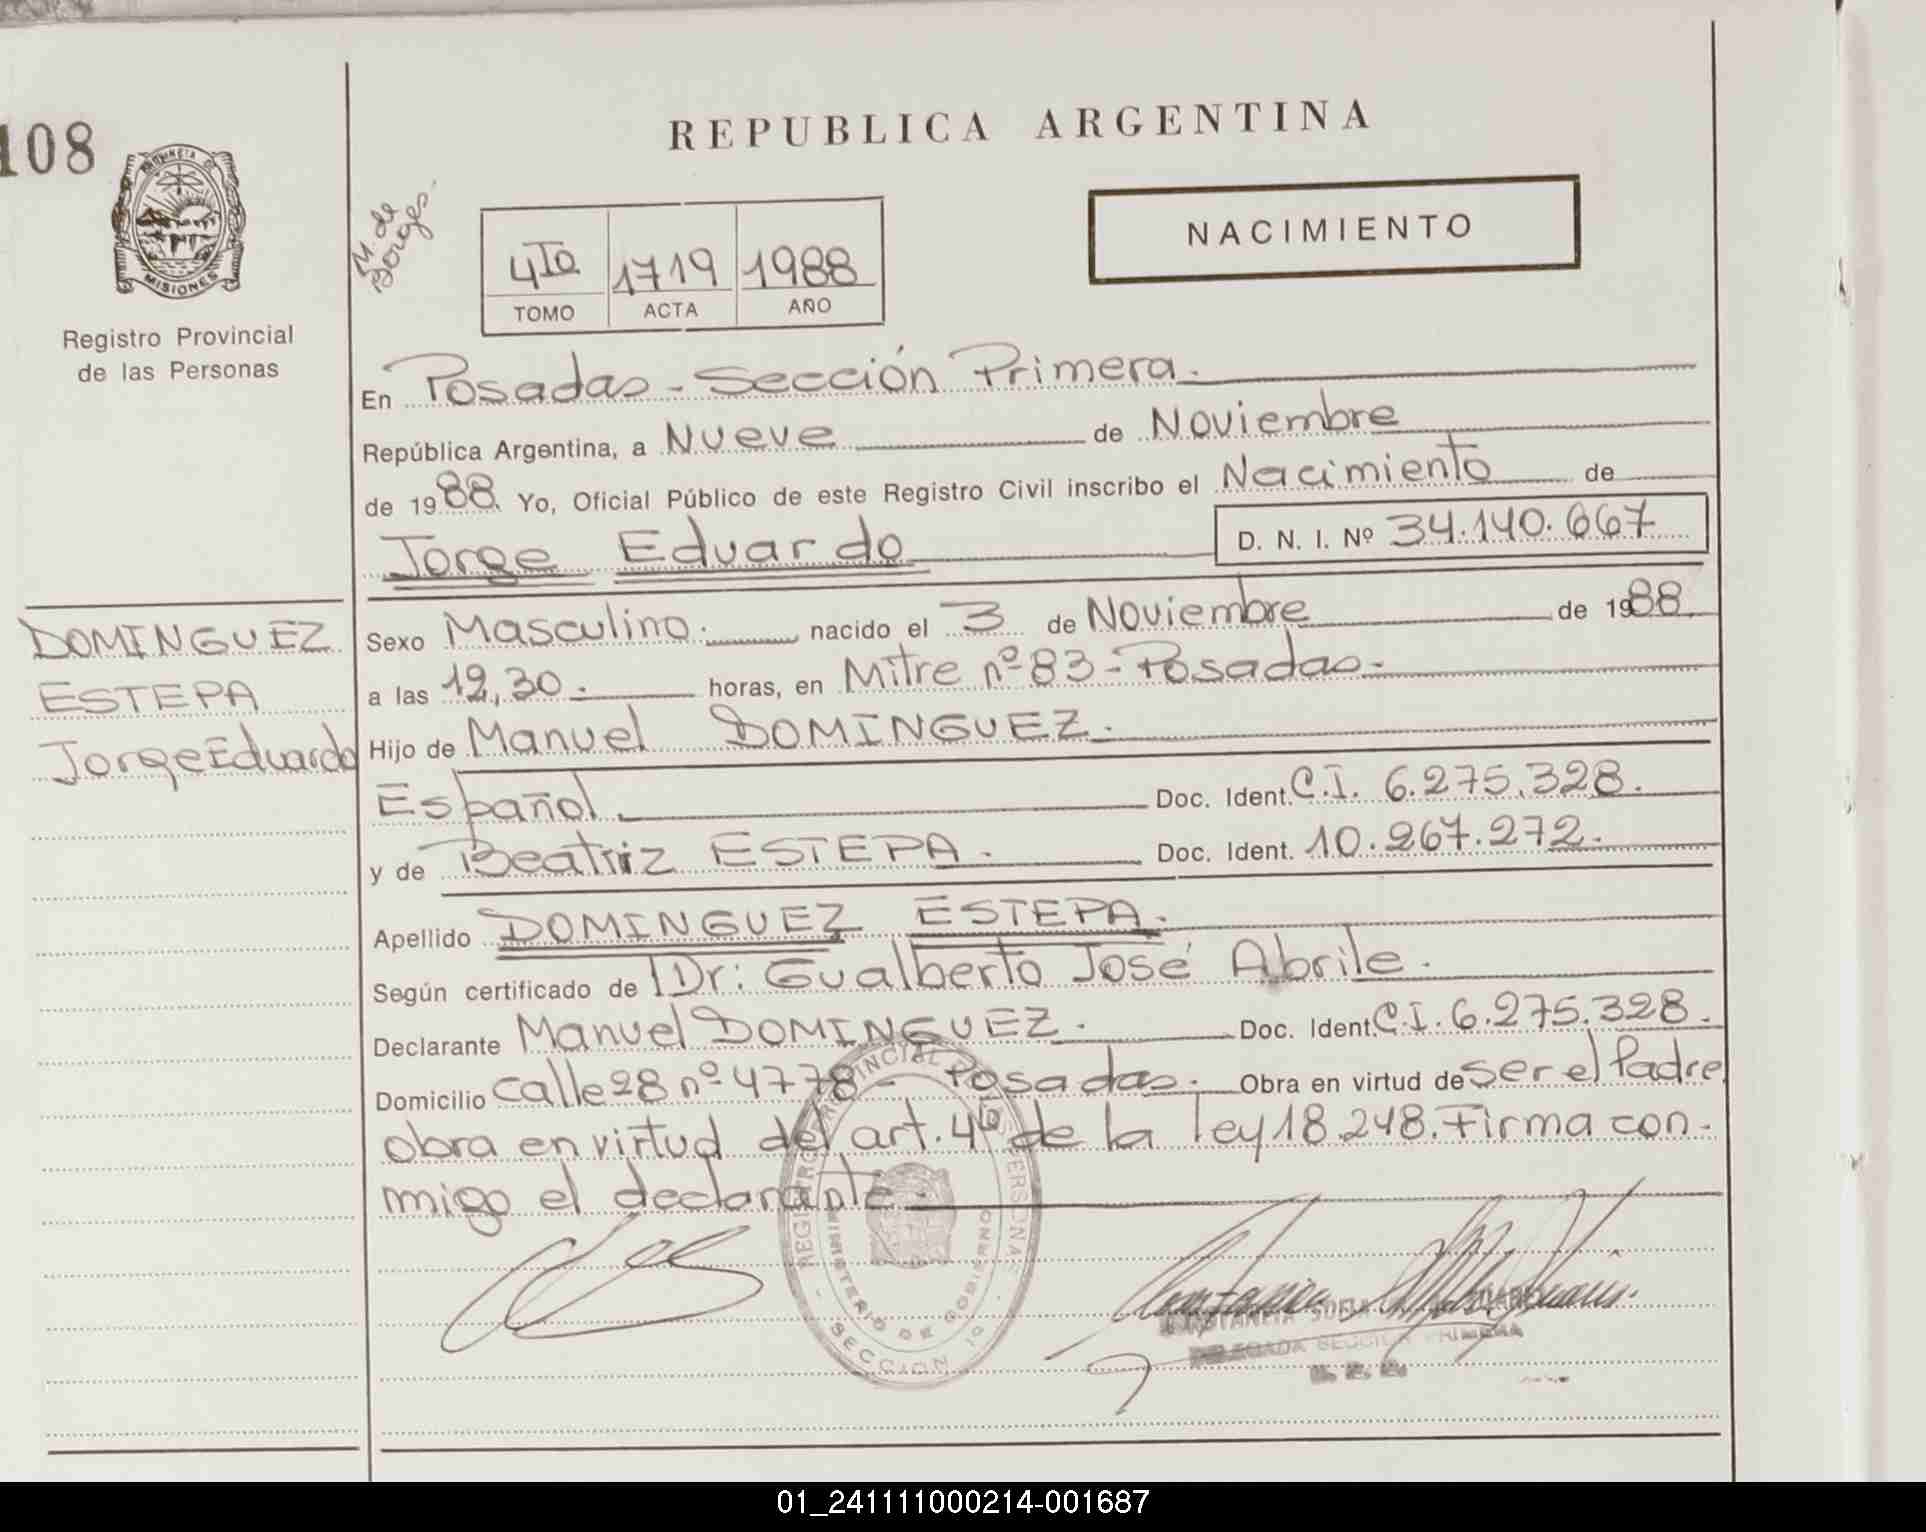 108
PROVINCIA DE
MISIONES
Registro Provincial
de las Personas
REPUBLICA ARGENTINA
M. de
Borges.
4TO 1719 1988
TOMO ACTA AÑO
NACIMIENTO
En Posadas - Sección Primera.
República Argentina, a Nueve de Noviembre
de 1988. Yo, Oficial Público de este Registro Civil inscribo el Nacimiento de
Jorge Eduardo D. N. I. Nº 34.140.667
DOMINGUEZ
ESTEPA
Jorge Eduardo
Sexo Masculino. nacido el 3 de Noviembre de 1988.
a las 12,30. horas, en Mitre nº 83 - Posadas.
Hijo de Manuel DOMINGUEZ.
Español. Doc. Ident. C.I. 6.275.328.
y de Beatriz ESTEPA. Doc. Ident. 10.267.272.
Apellido DOMINGUEZ ESTEPA.
Según certificado de Dr: Gualberto José Abrile.
Declarante Manuel DOMINGUEZ. Doc. Ident. C.I. 6.275.328.
Domicilio calle 28 nº 4778 - Posadas. Obra en virtud de ser el Padre
obra en virtud del art. 4º de la ley 18.248. Firma con-
migo el declarante.
REGISTRO PROVINCIAL DE LAS PERSONAS
MINISTERIO DE GOBIERNO
SECCION 1º
CONSTANCIA SOFIA
DELEGADA SECCION PRIMERA
01_241111000214-001687